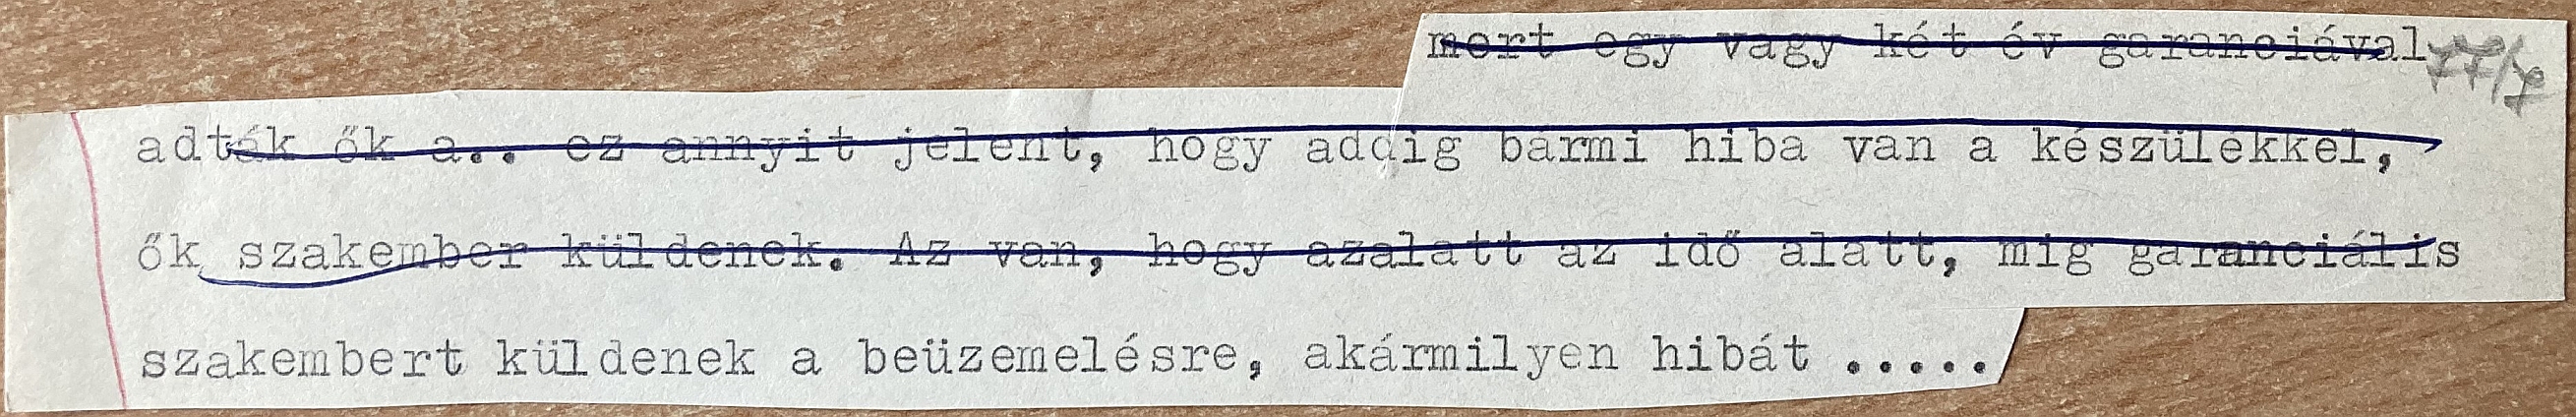 mert egy vagy két év garanciával
adták ők a.. ez annyit jelent, hogy addig bármi hiba van a készülékkel,
ők szakember küldenek. Az van, hogy azalatt az idő alatt, mig garanciális
szakembert küldenek a beüzemelésre, akármilyen hibát .....